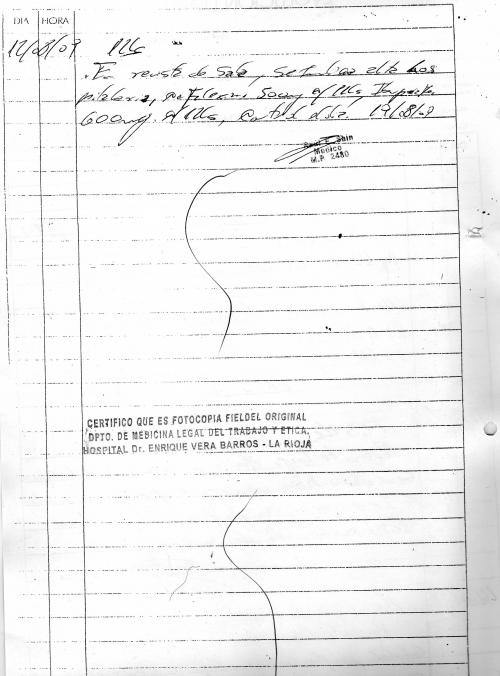 DIA HORA
12/08/09
En revista de Sala, se indica alta hos
pitalaria, 500mg c/
600mg. c/ Control día 19/08/0
Médico
M.P. 2480
CERTIFICO QUE ES FOTOCOPIA FIELDEL ORIGINAL
DPTO. DE MEDICINA LEGAL DEL TRABAJO Y ETICA,
HOSPITAL Dr. ENRIQUE VERA BARROS - LA RIOJA